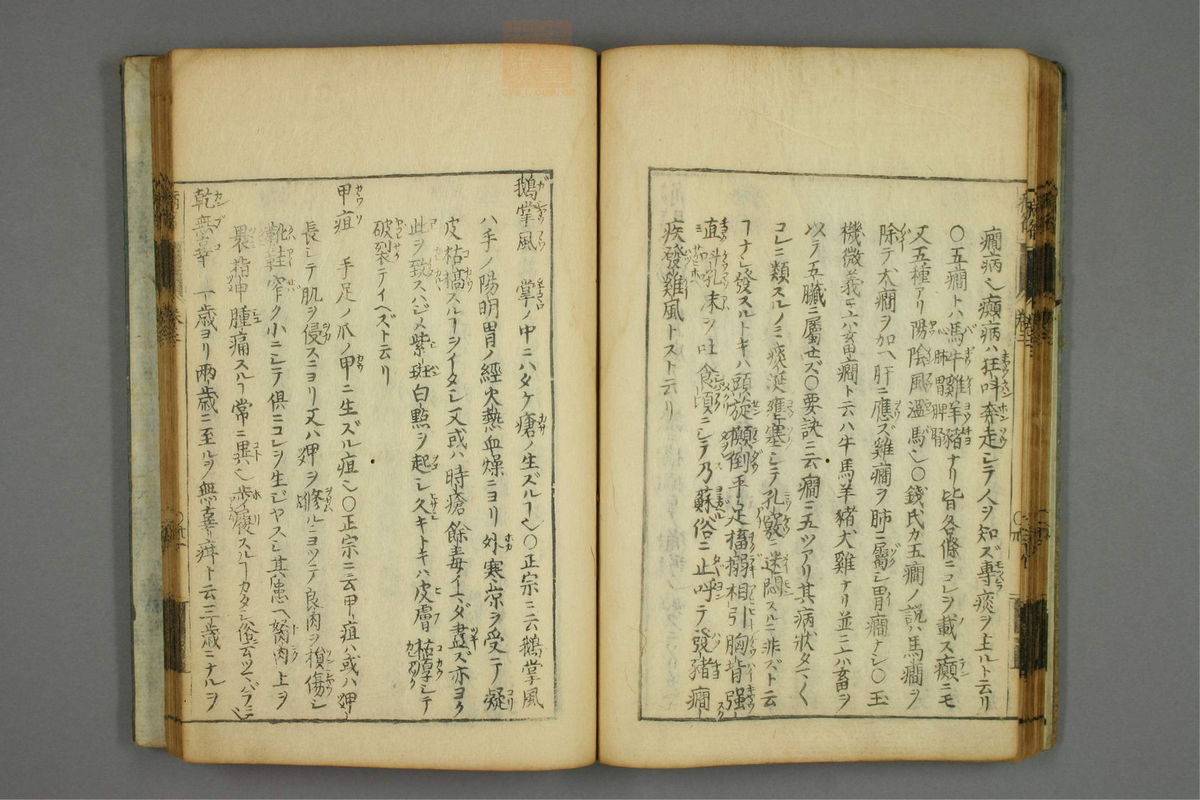 癇病乄癲病ハ狂呌奔走シテ人ヲ知ズ專痰ヲ主ルト云リ
〇五癇トハ馬牛雞羊豬ナリ皆各條ニコレヲ載ス癲ニモ
又五種アリ陽陰風濕馬乄〇錢氏カ五癇ノ説ハ馬癇ヲ
除テ犬癇ヲ加ヘ肝ニ應ズ雞癇ヲ肺ニ屬シ胃癇ナシ〇玉
機微義ニハ六畜癇ト云ハ牛馬羊豬犬雞ナリ並ニ六畜ヲ
以テ五臟ニ屬セズ〇要訣ニ云癇ニ五ツアリ其病狀タヾ〱
コレニ類スルノミ痰涎壅塞シテ孔竅ニ迷悶スルニ非ズト云
フナシ發スルトキハ頭旋癲倒手足搐搦相引胸背强
直呌沫シ吐食頃ニシテ乃蘇俗ニ止呼テ發豬癇
疾發雞風トスト云リ
鵝掌風 掌ノ中ニハタケ瘡ノ生ズルヿ乄〇正宗ニ云鵝掌風
ハ手ノ陽明胃ノ經火熱血燥ニヨリ外寒凉ヲ受テ凝
皮枯槁スルヿヲイタシ又或ハ時瘡餘毒イマダ盡ズ亦ヨク
此ヲ致スハジメ紫斑白點ヲ起シ久キトキハ皮膚枯厚シテ
破裂テイヘズト云リ
甲疽 手足ノ爪ノ甲ニ生ズル疽乄〇正宗ニ云甲疽ハ或ハ甲
長シテ肌ヲ侵スニヨリ又ハ甲ヲ修ルニヨツテ良肉ヲ損傷シ
靴鞋窄ク小ニシテ俱ニコレヲ生ジヤスシ其患ヘ胬肉上ヲ
裹指甲腫痛スルヿ常ニ異乄步履スルヿカタシ俗云ツマバラミ
乾無辜 一歲ヨリ兩歲ニ至ルヲ無辜疳ト云三歲ニナルヲ